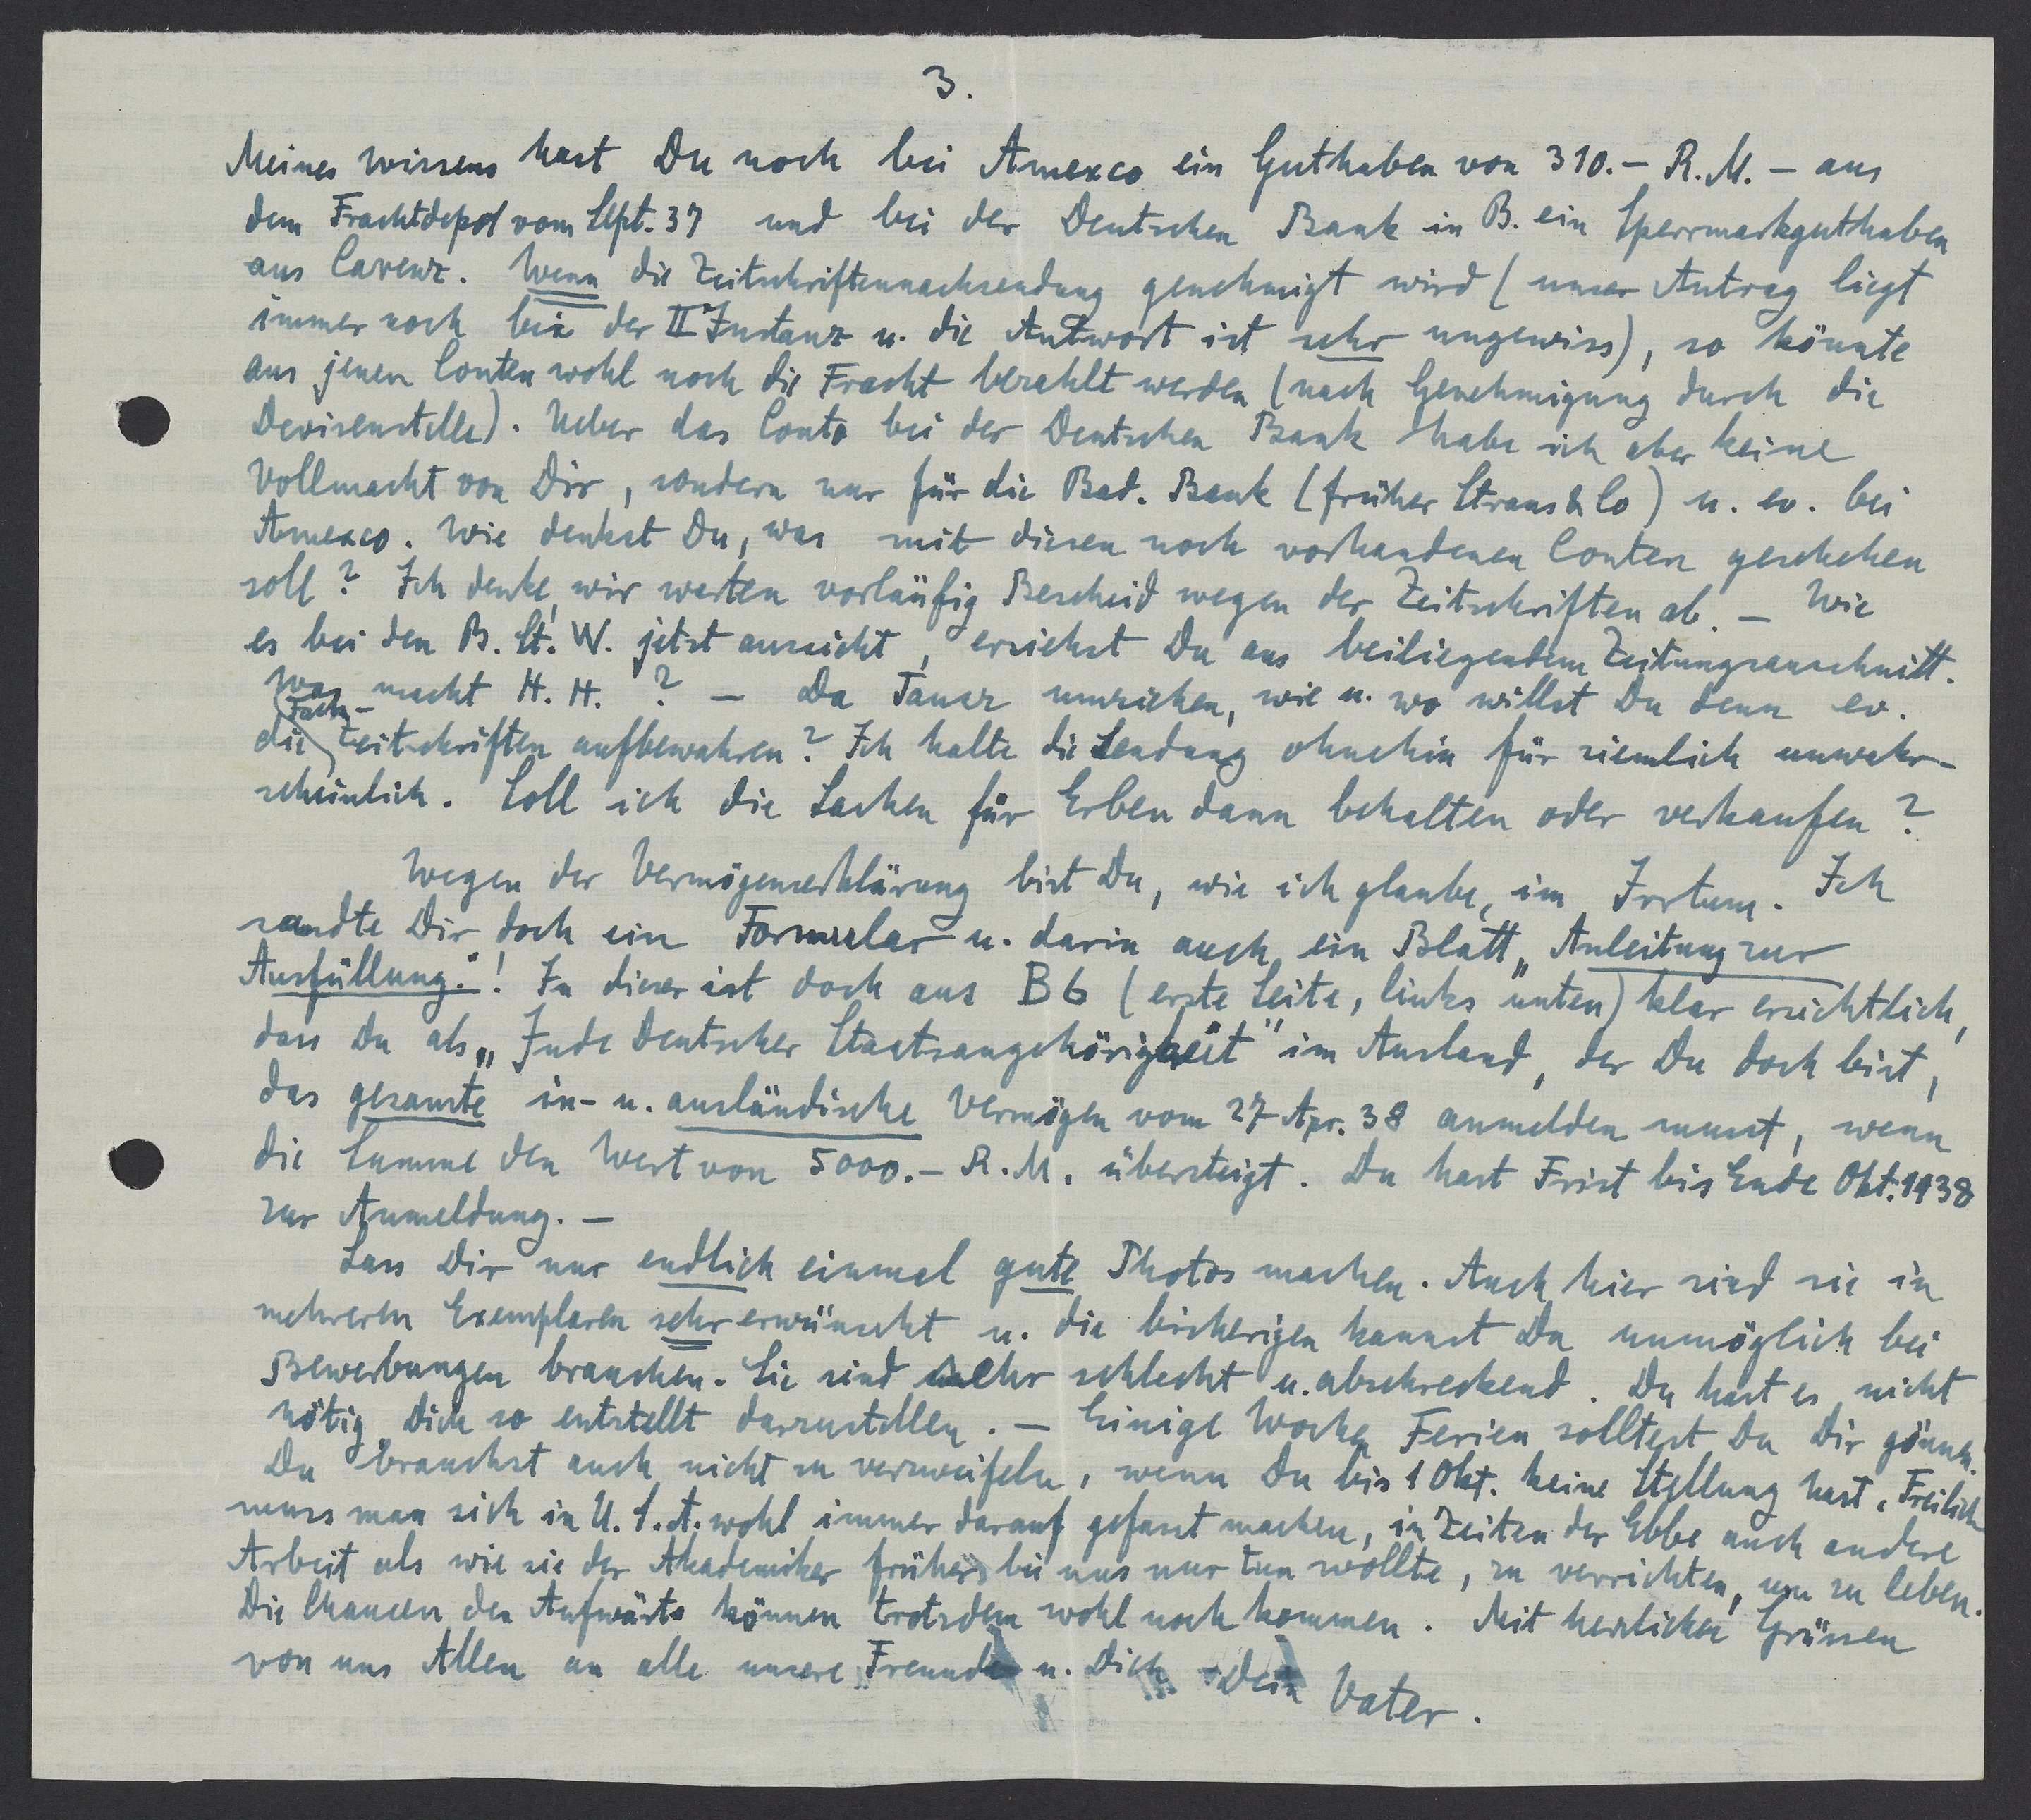 3.
Meines Wissens hast Du noch bei Amexco ein Guthaben von 310.– R.M. – aus
dem Frachtdepot vom Sept. 37 und bei der Deutschen Bank in B. ein Sperrmarkguthaben
aus Carenz. Wenn die Zeitschriftennachsendung genehmigt wird (unser Antrag liegt
immer noch bei der II Instanz u. die Antwort ist sehr ungewiss), so könnte
aus jenen Conten wohl noch die Fracht bezahlt werden (nach Genehmigung durch die
Devisenstelle). Ueber das Conto bei der Deutschen Bank habe ich aber keine
Vollmacht von Dir, sondern nur für die Bad. Bank (früher Straus & Co) u. ev. bei
Amexco. Wie denkst Du, was mit diesen noch vorhandenen Conten geschehen
soll? Ich denke, wir warten vorläufig Bescheid wegen der Zeitschriften ab. – Wie
es bei den B. St. W. jetzt aussieht, ersiehst Du aus beiliegendem Zeitungsausschnitt.
Was macht H. H. ? – Da Tausz umziehen, wie u. wo willst Du denn ev.
die Fach-Zeitschriften aufbewahren? Ich halte die Sendung ohnehin für ziemlich unwahr-
scheinlich. Soll ich die Sachen für Erben dann behalten oder verkaufen?
Wegen der Vermögenserklärung bist Du, wie ich glaube, im Irrtum. Ich
sandte Dir doch ein Formular u. darin auch ein Blatt „Anleitung zur
Ausfüllung."! In dieser ist doch aus B6 (erste Seite, links unten) klar ersichtlich,
dass Du als „Jude Deutscher Staatsangehörigkeit" im Ausland, der Du doch bist,
das gesamte in- u. ausländische Vermögen vom 27 Apr. 38 anmelden musst, wenn
die Summe den Wert von 5000.– R.M. übersteigt. Du hast Frist bis Ende Okt. 1938
zur Anmeldung. –
Lass Dir nur endlich einmal gute Photos machen. Auch hier sind sie in
mehreren Exemplaren sehr erwünscht u. die bisherigen kannst Du unmöglich bei
Bewerbungen brauchen. Sie sind sehr schlecht u. abschreckend. Du hast es nicht
nötig, Dich so entstellt darzustellen. – Einige Wochen Ferien solltest Du Dir gönnen.
Du brauchst auch nicht zu verzweifeln, wenn Du bis 1 Okt. keine Stellung hast. Freilich
muss man sich in U.S.A. wohl immer darauf gefasst machen, in Zeiten der Ebbe auch andere
Arbeit als wie sie der Akademiker früher bei uns nur tun wollte, zu verrichten, um zu leben.
Die Chancen des Aufwärts können trotzdem wohl noch kommen. Mit herzlichen Grüssen
von uns Allen an alle unsere Freunde u. Dich – Dein Vater.